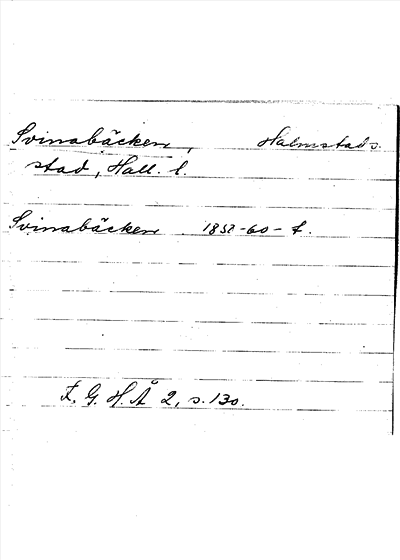 Svinabäcken, Halmstads
stad, Hall. l.
Svinabäcken 1852-60-t.
F. G. H. Å 2, s. 130.